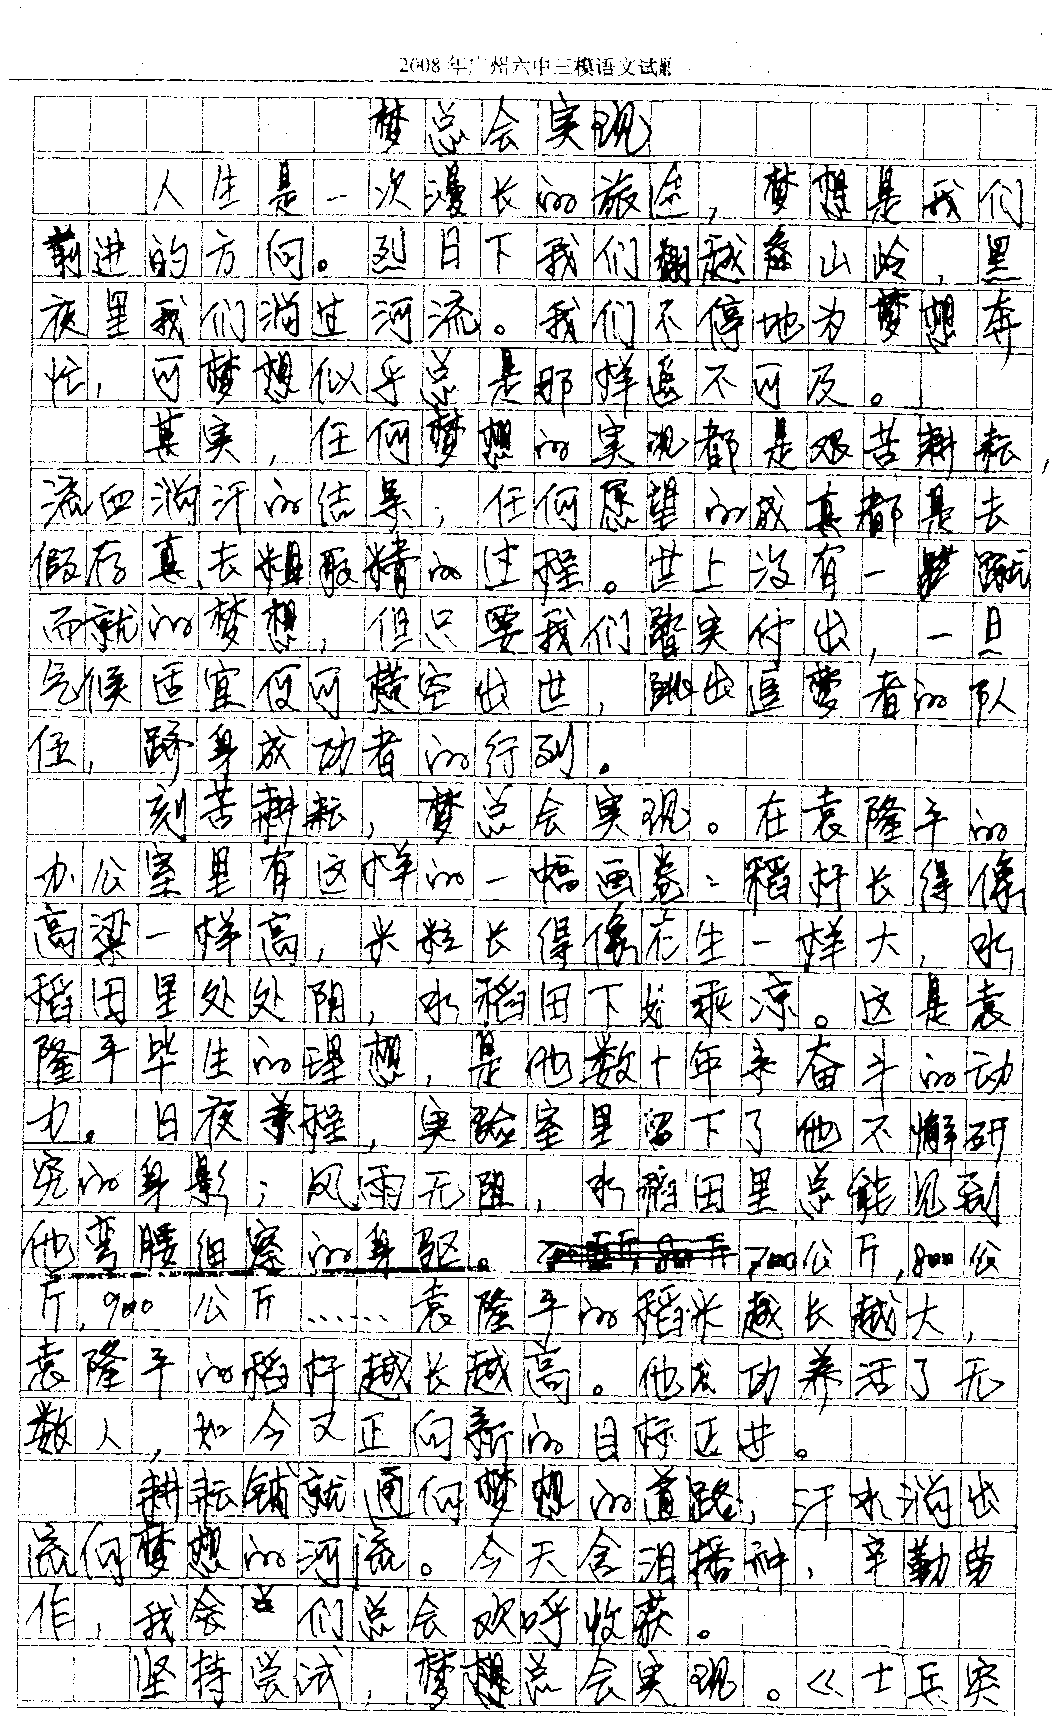 2008年广州六中三模语文试
梦总会实现
人生是一次漫长的旅途，梦想是我们
前进的方向。烈日下我们翻越山岭，黑
夜里我们淌过河流。我们不停地为梦想奔
忙，可梦想似乎总是那样遥不可及。
其实，任何梦想的实现都是艰苦耕耘，
流血淌汗的结果，任何愿望的成真都是去
假存真去粗取精的过程。世上没有一蹴
而就的梦想，但只要我们踏实付出，一旦
气候适宜便可横空出世，跳出追梦者的队
伍，跻身成功者的行列。
刻苦耕耘，梦总会实现。在袁隆平的
办公室里有这样的一幅画卷：稻杆长得像
高梁一样高，米粒长得像花生一样大，水
稻田里处处阴，水稻田下好乘凉。这是袁
隆平毕生的理想，是他数十年来奋斗的动
力。日夜兼程，实验室里留下了他不懈研
究的身影；风雨无阻，水稻田里总能见到
他弯腰细察的身躯。700公斤，800公
斤，900公斤……袁隆平的稻米越长越大，
袁隆平的稻杆越长越高。他成功养活了无
数人，如今又正向新的目标迈进。
耕耘铺就通向梦想的道路，汗水淌出
流向梦想的河流。今天含泪播种，辛勤劳
作，我会们总会欢呼收获。
坚持尝试，梦想总会实现。《士兵突